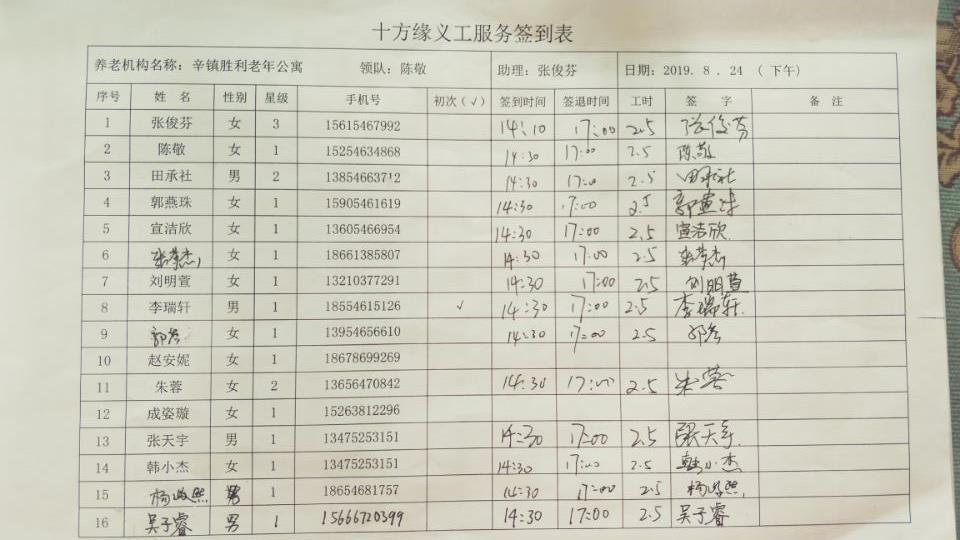 十方缘义工服务签到表
养老机构名称：辛镇胜利老年公寓 领队：陈敬 助理：张俊芬 日期：2019.8.24 （下午）
序号 姓名 性别 星级 手机号 初次（√） 签到时间 签退时间 工时 签字 备注
1 张俊芬 女 3 15615467992 14:10 17:00 2.5 张俊芬
2 陈敬 女 1 15254634868 14:30 17:00 2.5 陈敬
3 田承社 男 2 13854663712 14:30 17:00 2.5 田承社
4 郭燕珠 女 1 15905461619 14:30 17:00 2.5 郭燕珠
5 宣洁欣 女 1 13605466954 14:30 17:00 2.5 宣洁欣
6 女 1 18661385807 14:30 17:00 2.5
7 刘明萱 女 1 13210377291 14:30 17:00 2.5 刘明萱
8 李瑞轩 男 1 18554615126 √ 14:30 17:00 2.5 李瑞轩
9 女 1 13954656610 14:30 17:00 2.5
10 赵安妮 女 1 18678699269
11 朱蓉 女 2 13656470842 14:30 17:00 2.5 朱蓉
12 成姿璇 女 1 15263812296
13 张天宇 男 1 13475253151 14:30 17:00 2.5 张天宇
14 韩小杰 女 1 13475253151 14:30 17:00 2.5 韩小杰
15 杨峻熙 男 1 18654681757 14:30 17:00 2.5 杨峻熙
16 吴子睿 男 1 15666720399 14:30 17:00 2.5 吴子睿